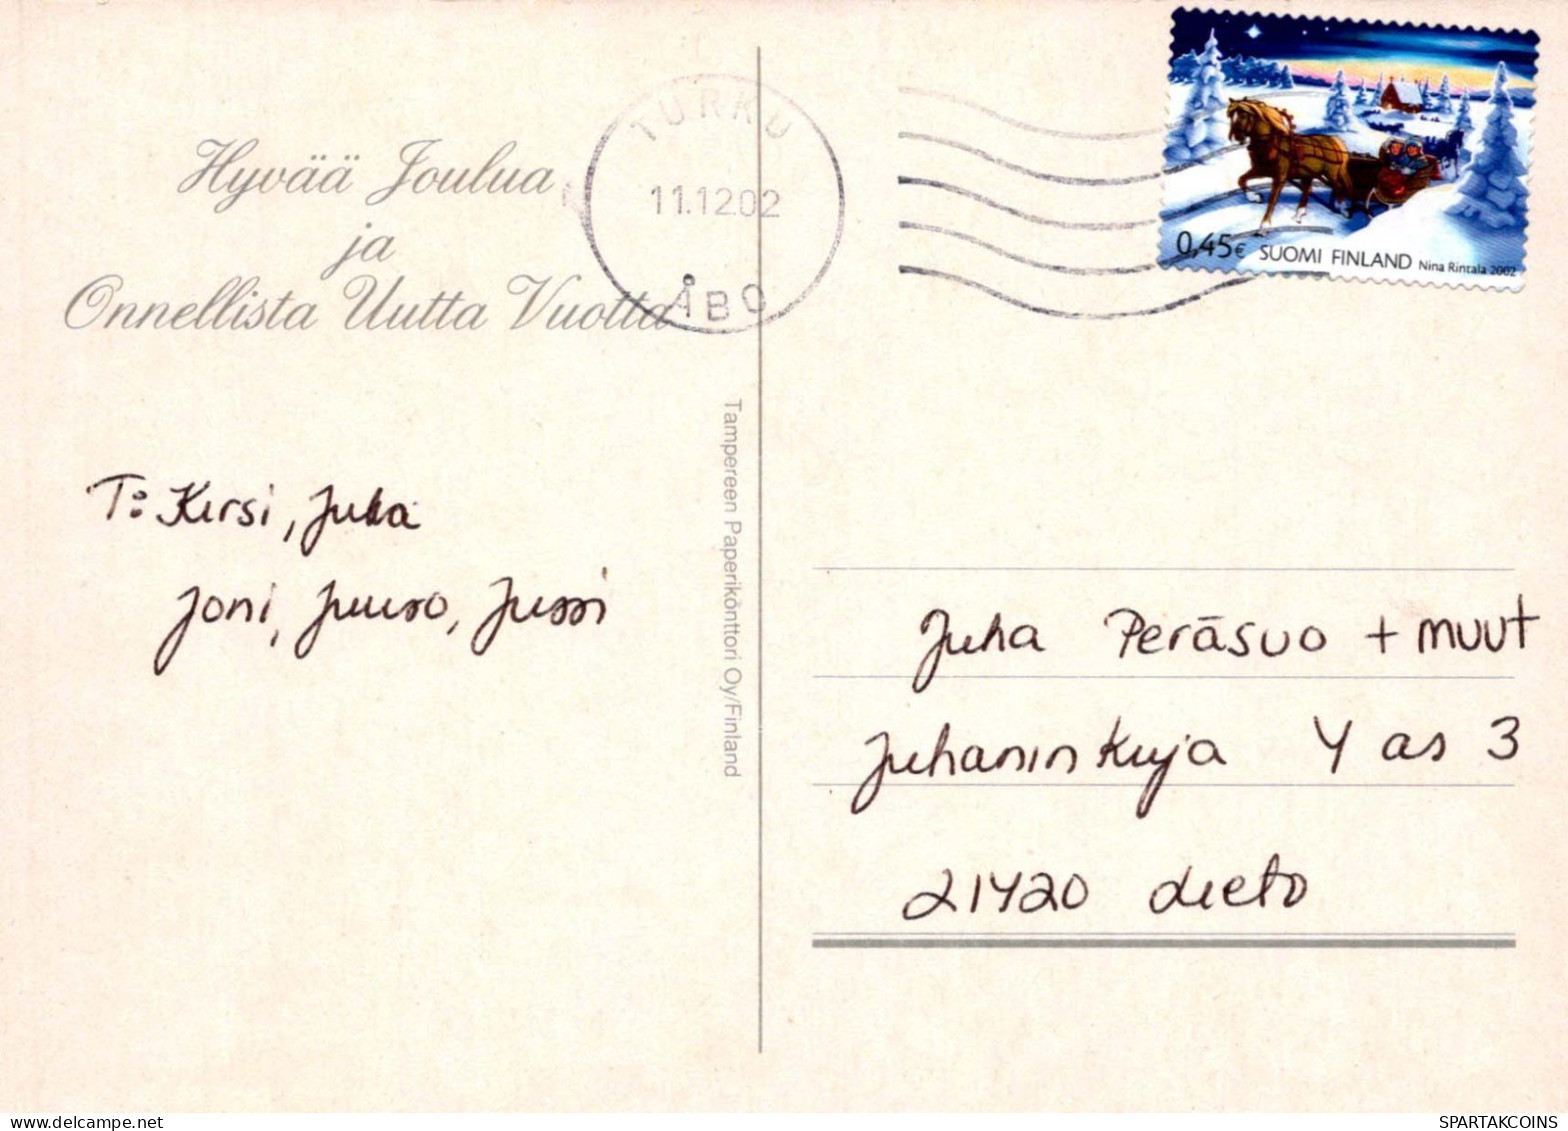 Hyvää Joulua
ja
Onnellista Uutta Vuotta
TURKU
11.12.02
ÅBO
0,45€ SUOMI FINLAND Nina Rintala 2002
T: Kirsi, Juka
Joni, Juuso, Jussi
Tampereen Paperikönttori Oy/Finland
Juha Peräsuo + muut
Juhaninkuja 4 as 3
21420 Lieto
SPARTAKCOINS